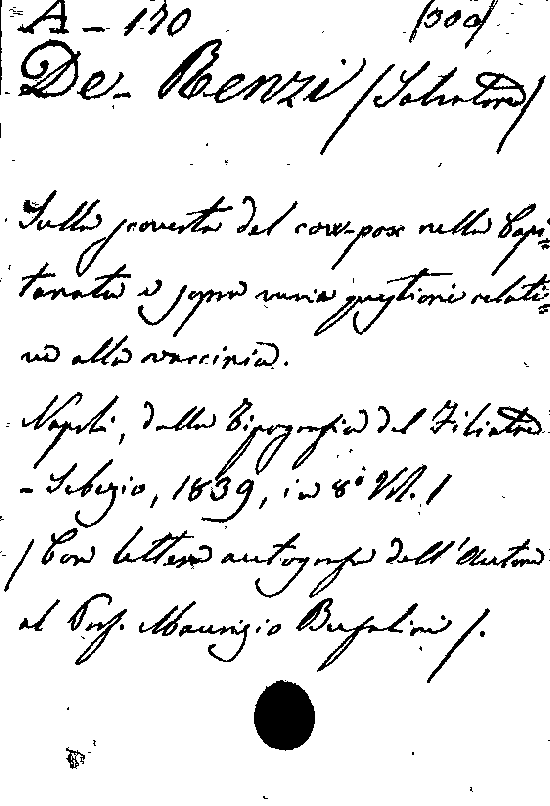 A - 170 (300)
De-Renzi (Salvatore)
Sulla scoverta del cow-pox nella Capi=
tanata e sopra varia quistioni relati=
ve alla vaccinia.
Napoli, dalla Tipografia del Filiatre
-Sebezio, 1839, in 8° Vol. 1
(Con lettera autografa dell'Autore
al Prof. Maurizio Bufalini).